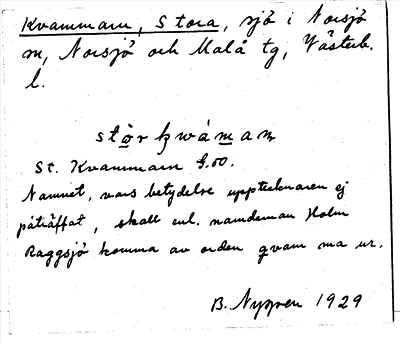 Kvammarn, Stora, sjö i Norsjö
sn, Norsjö och Malå tg, Västerb.
l.
St. Kvammarn G.00.
Namnet, vars betydelse upptecknaren ej
påträffat, skall enl. nämdeman Holm
Raggsjö komma av orden qvarn ma ur.
B. Nygren 1929